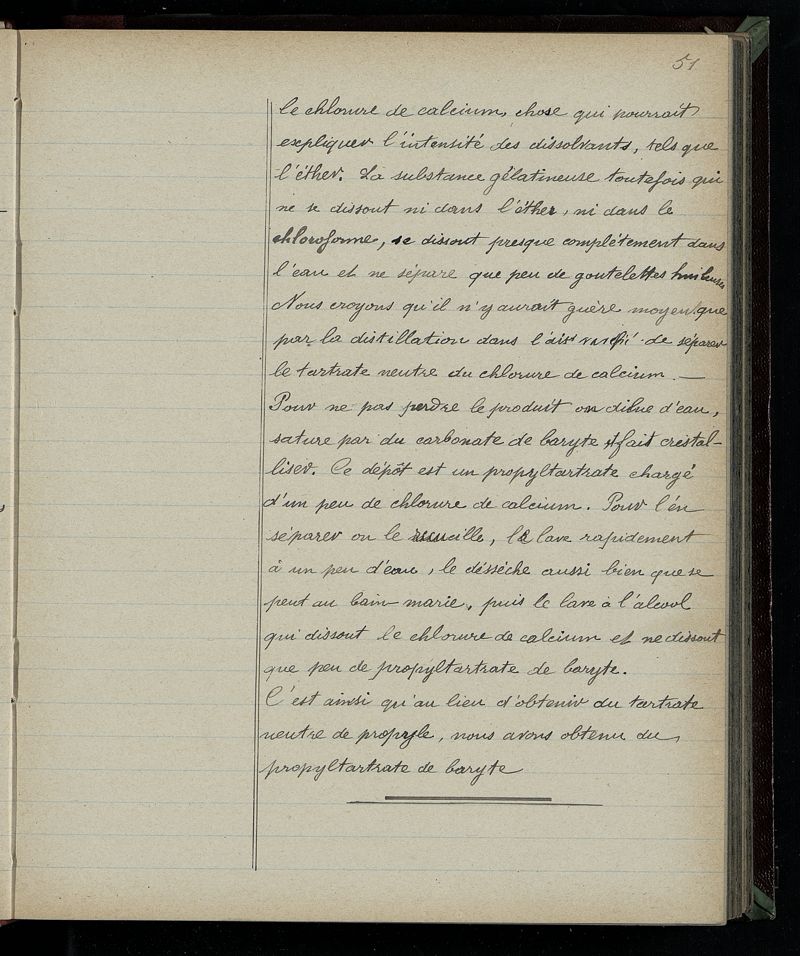 51
le chlorure de calcium, chose qui pourrait
expliquer l'intensité des dissolvants, tels que
l'éther. La substance gélatineuse toutefois qui
ne se dissout ni dans l'éther, ni dans le
chloroforme, se dissout presque complétement dans
l'eau et ne sépare que peu de goutelettes huileuses
Nous croyons qu'il n'y aurait guère moyen que
par la distillation dans l'air raréfié de séparer
le tartrate neutre du chlorure de calcium. —
Pour ne pas perdre le produit on dilue d'eau,
sature par du carbonate de baryte et fait cristal-
liser. Ce dépôt est un propyltartrate chargé
d'un peu de chlorure de calcium. Pour l'én
séparer on le recueille, le lave rapidement
à un peu d'eau, le désséche aussi bien que se
peut au bain marie, puis le lave à l'alcool
qui dissout le chlorure de calcium et ne dissout
que peu de propyltartrate de baryte.
C'est ainsi qu'au lieu d'obtenir du tartrate
neutre de propyle, nous avons obtenu du
propyltartrate de baryte